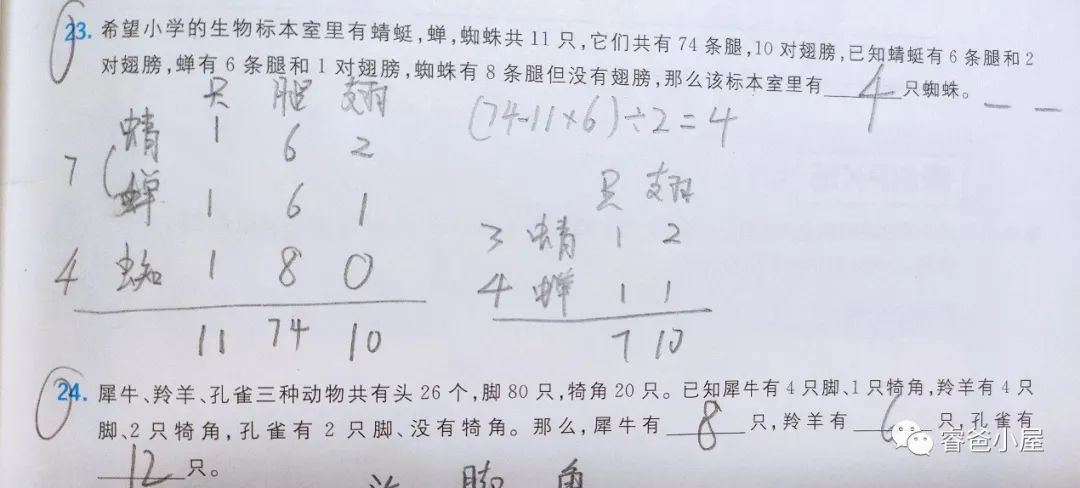 23. 希望小学的生物标本室里有蜻蜓,蝉,蜘蛛共 11 只,它们共有 74 条腿,10 对翅膀,已知蜻蜓有 6 条腿和 2
对翅膀,蝉有 6 条腿和 1 对翅膀,蜘蛛有 8 条腿但没有翅膀,那么该标本室里有 4 只蜘蛛。
只 腿 翅
蜻 1 6 2
7
蝉 1 6 1
4 蜘 1 8 0
11 74 10
(74-11×6)÷2=4
只 翅
3 蜻 1 2
4 蝉 1 1
7 10
24. 犀牛、羚羊、孔雀三种动物共有头 26 个,脚 80 只,犄角 20 只。已知犀牛有 4 只脚、1 只犄角,羚羊有 4 只
脚、2 只犄角,孔雀有 2 只脚、没有犄角。那么,犀牛有 8 只,羚羊有 6 只,孔雀有
12 只。
脚 角
睿爸小屋